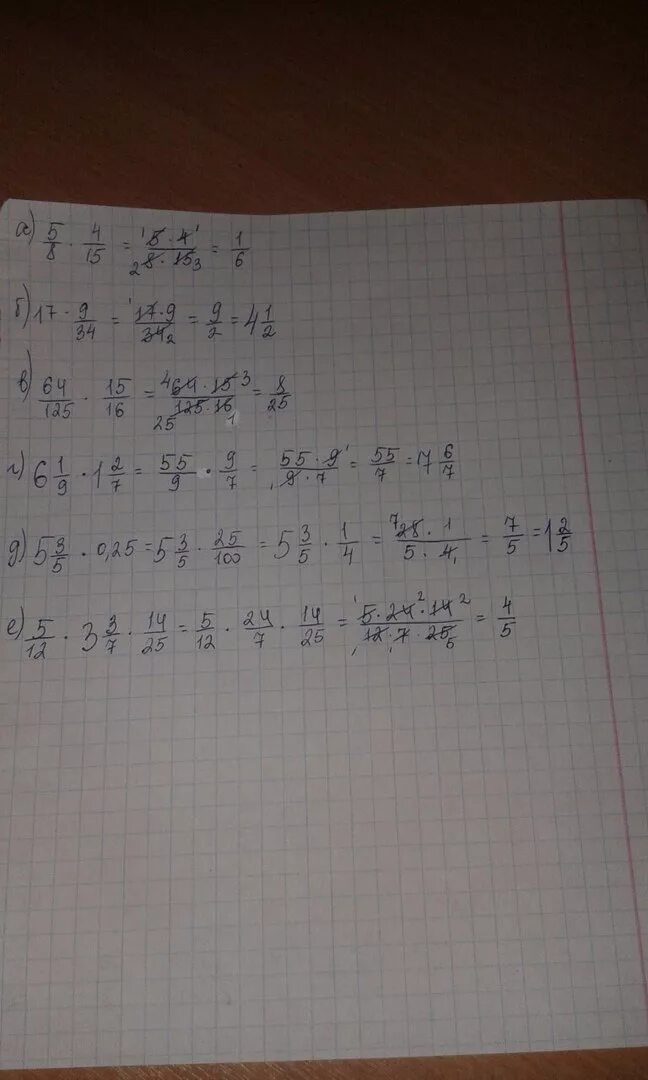 а) 5/8 · 4/15 = 5·4/8·15 = 1/6
б) 17 · 9/34 = 17·9/34 = 9/2 = 4 1/2
в) 64/125 · 15/16 = 64·15/125·16 = 8/25
г) 6 1/9 · 1 2/7 = 55/9 · 9/7 = 55·9/9·7 = 55/7 = 17 6/7
д) 5 3/5 · 0,25 = 5 3/5 · 25/100 = 5 3/5 · 1/4 = 28·1/5·4 = 7/5 = 1 2/5
е) 5/12 · 3 3/7 · 14/25 = 5/12 · 24/7 · 14/25 = 5·24·14/12·7·25 = 4/5